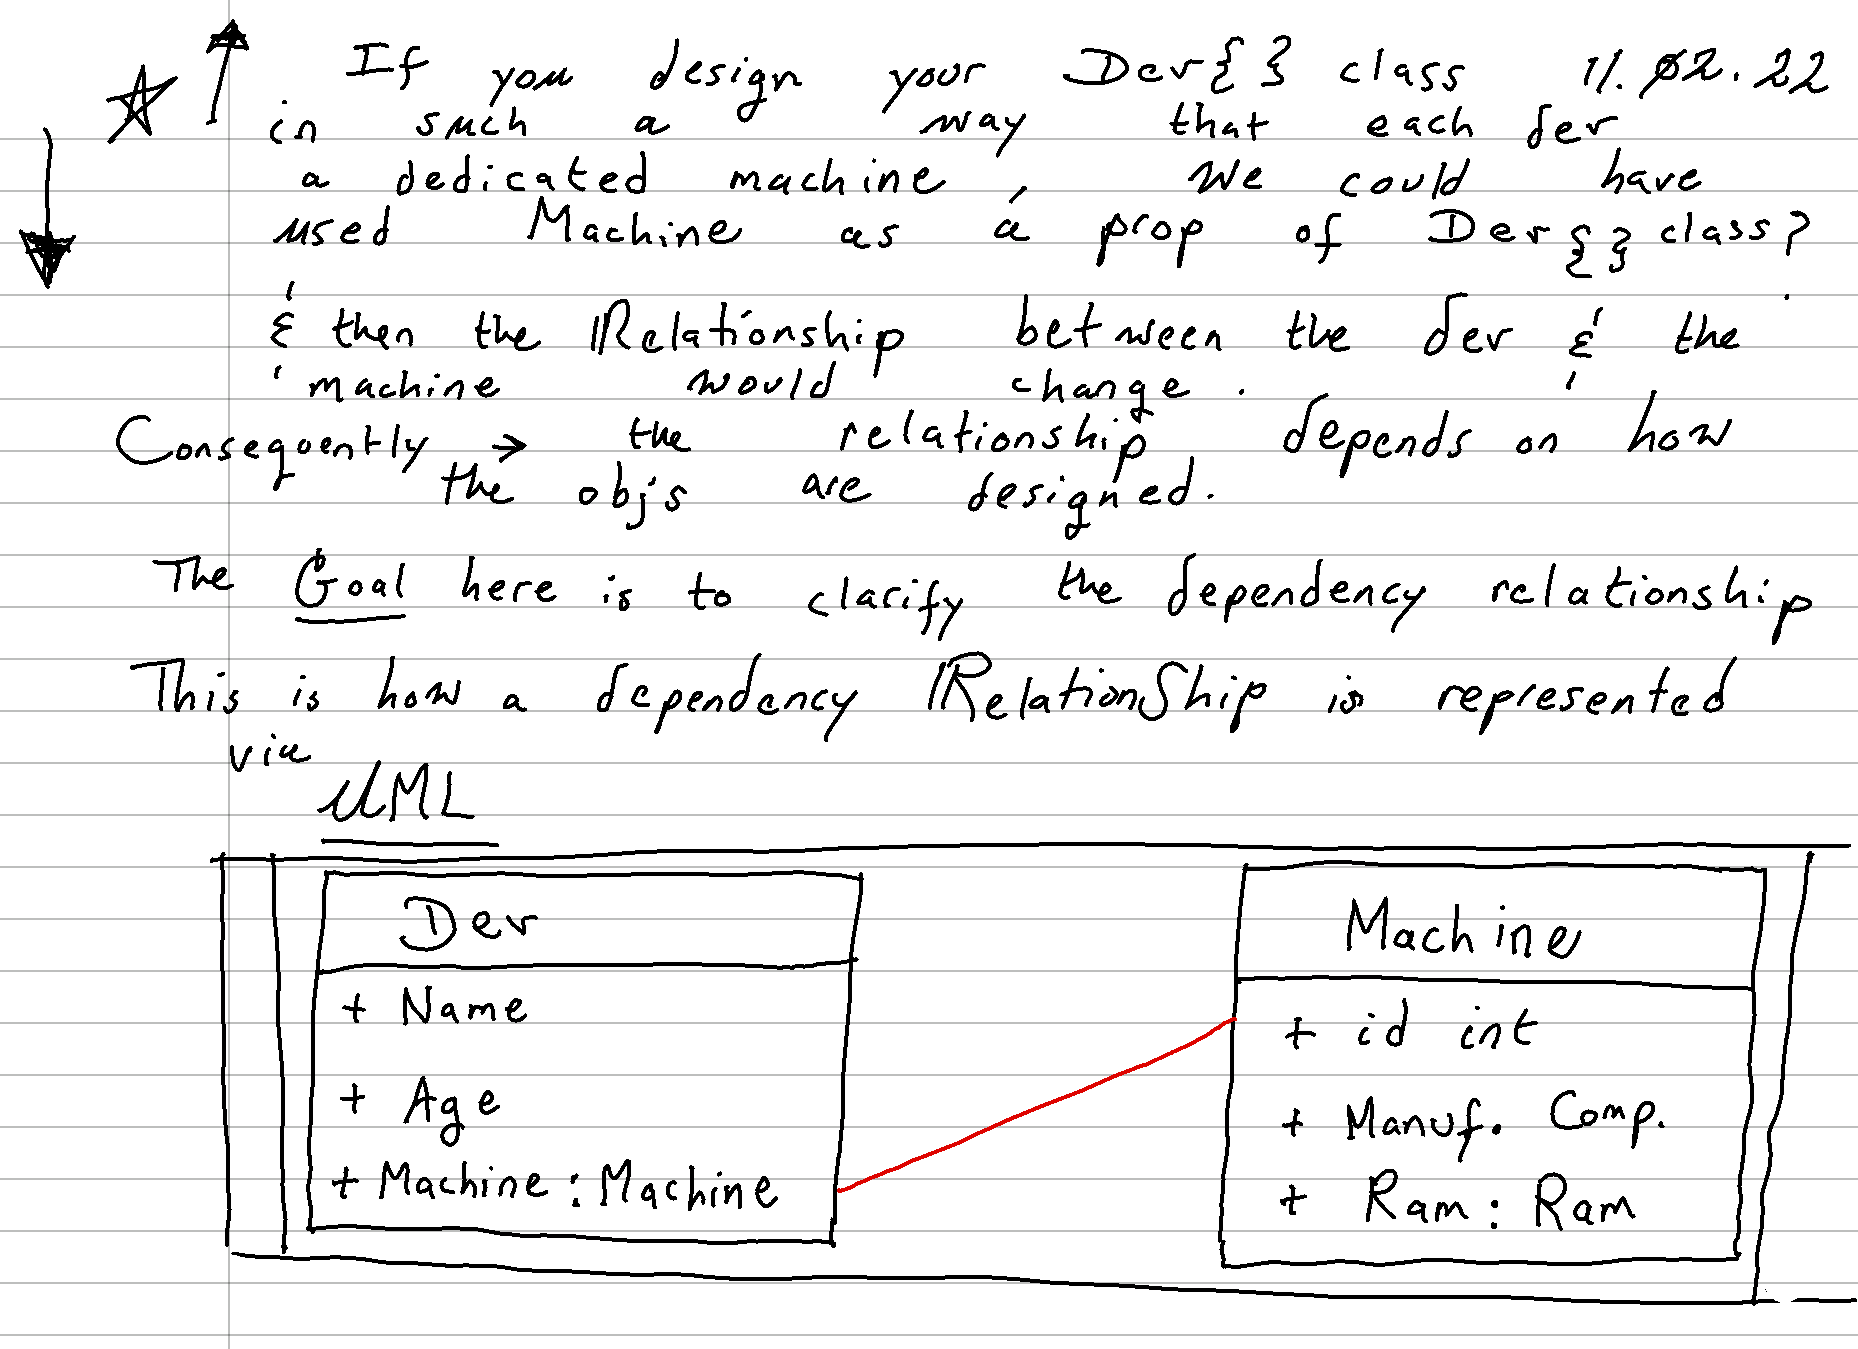 If you design your Dev{} class 11.02.22
in such a way that each dev
a dedicated machine, We could have
used Machine as a prop of Dev{} class?
& then the Relationship between the dev & the
machine would change.
Consequently → the relationship depends on how
the obj's are designed.
The Goal here is to clarify the dependency relationship
This is how a dependency RelationShip is represented
via
UML
Dev
+ Name
+ Age
+ Machine : Machine
Machine
+ id int
+ Manuf. Comp.
+ Ram : Ram